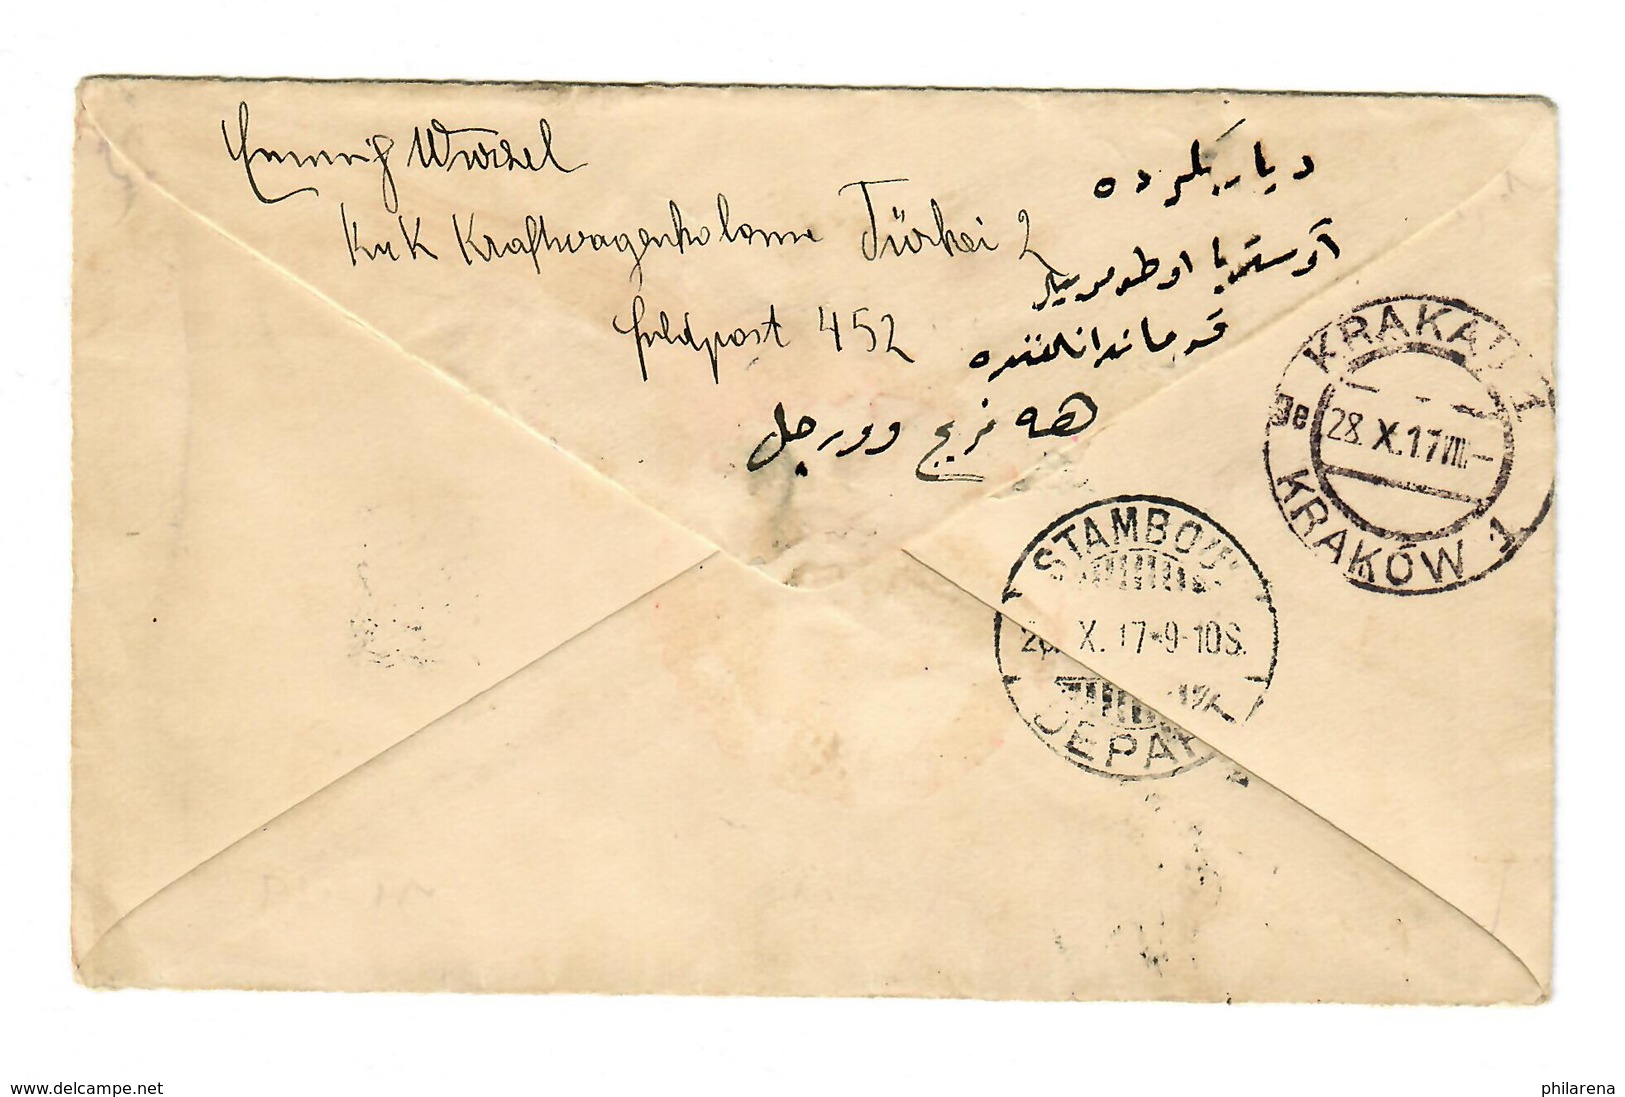 Emmerich Wurzel
KuK Kraftwagenkolonne Türkei 2
Feldpost 452
دیاربکرده
آوستریا اوطوموبیل
قوماندانلغنده
هه مریج وورچل
KRAKAU 1
9e
28.X.17 VIII –
KRAKÓW 1
STAMBOUL
X. 17 * 9-10S.
DEPART
www.delcampe.net
philarena